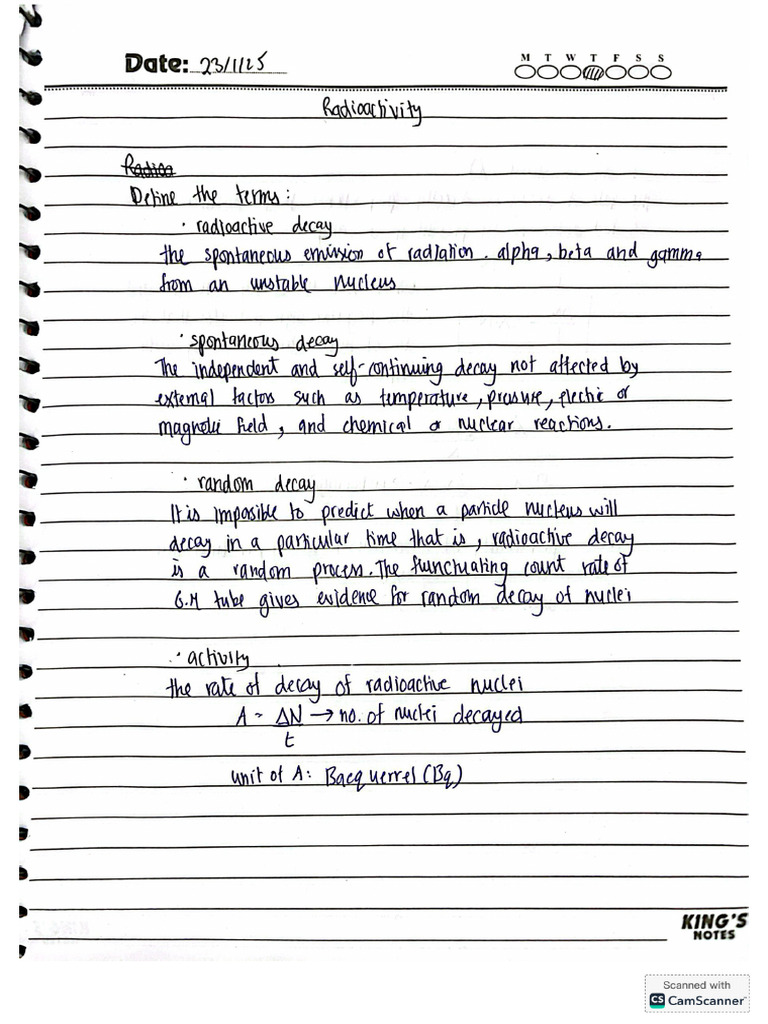 Date: 23/1/25
M T W T F S S
Radioactivity
Radioa
Define the terms:
· radioactive decay
the spontaneous emission of radiation. alpha, beta and gamma
from an unstable nucleus.
· spontaneous decay
The independent and self-continuing decay not affected by
external factors such as temperature, pressure, electric or
magnetic field, and chemical or nuclear reactions.
· random decay
It is imposible to predict when a particle nucleus will
decay in a particular time that is, radioactive decay
is a random process. The flunctuating count rate of
G.M tube gives evidence for random decay of nuclei
· activity
the rate of decay of radioactive nuclei
A = ΔN → no. of nuclei decayed
t
unit of A: Bacquerrel (Bq)
KING'S
NOTES
Scanned with
CS CamScanner